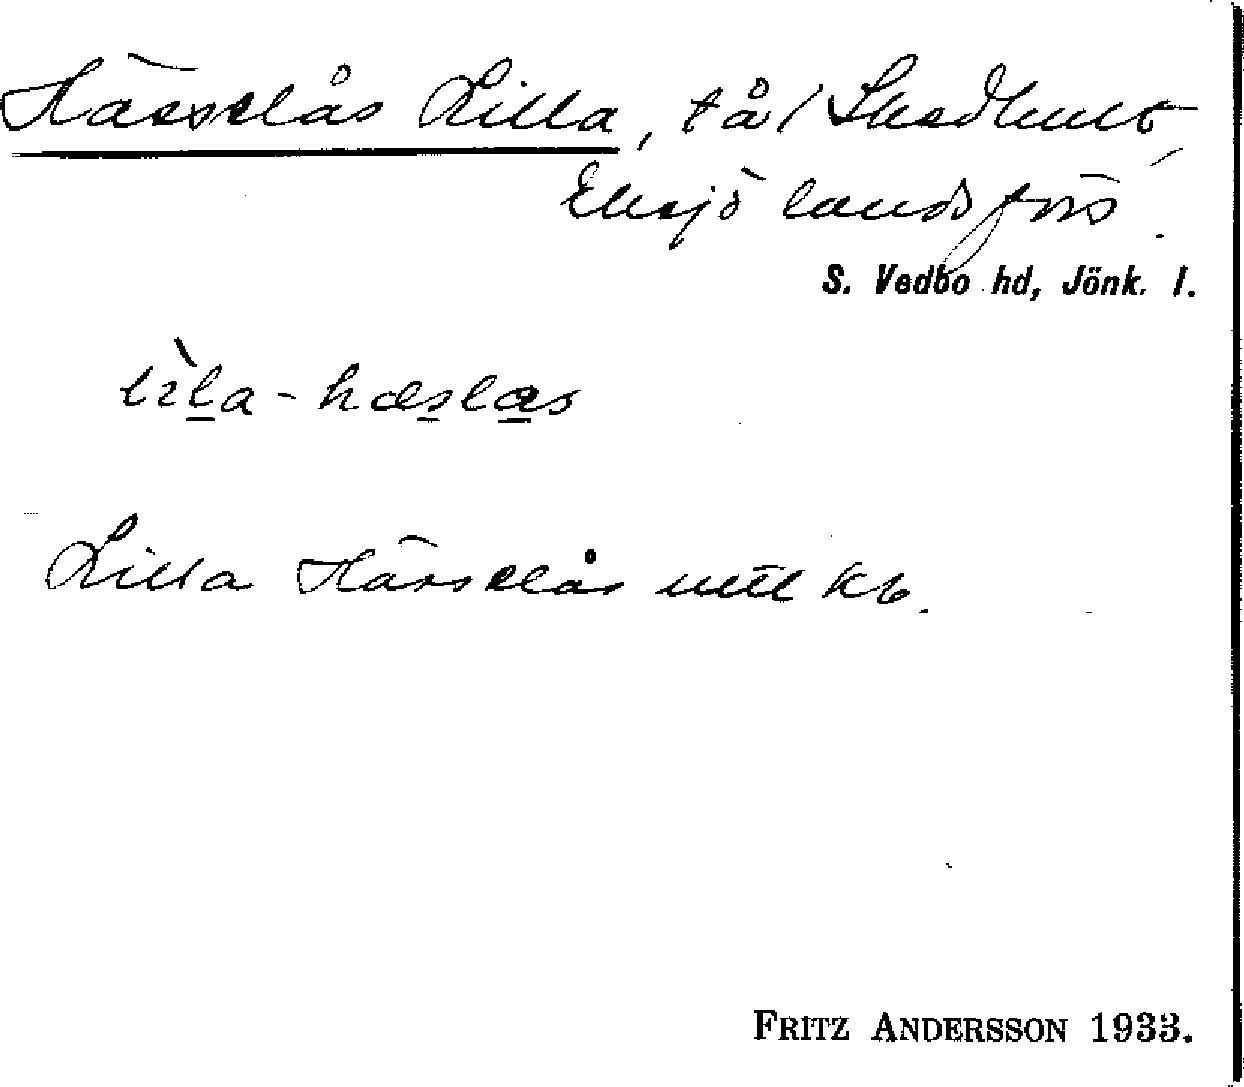 Hässelås Lilla, t å / Skedhult,
Eksjö landsförs.
S. Vedbo hd, Jönk. l.
Lilla Hässelås utt kb.
FRITZ ANDERSSON 1933.